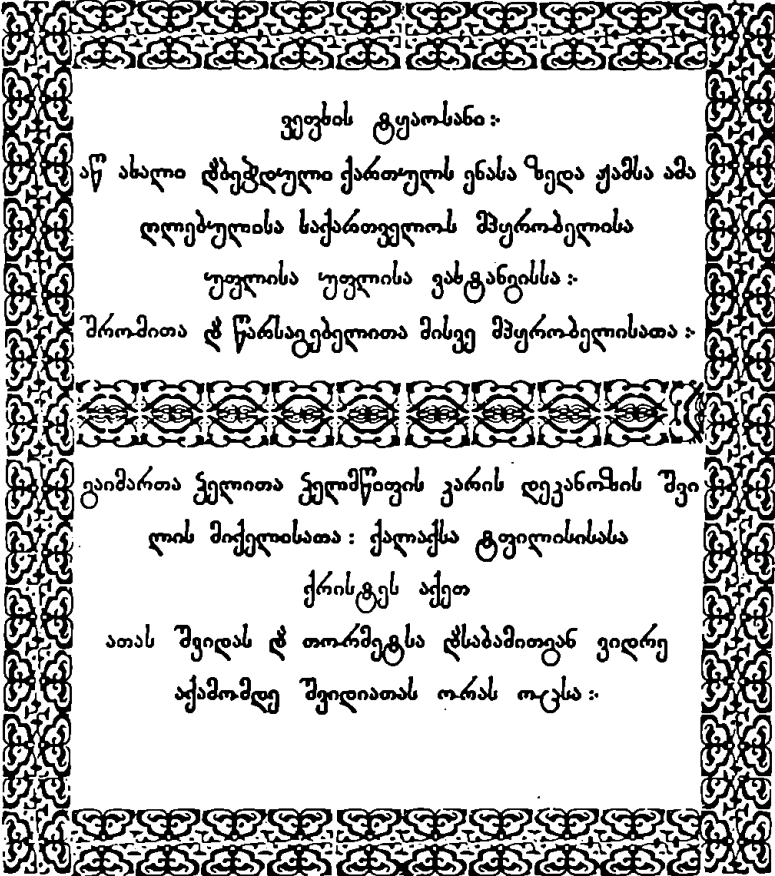 ვეფხის ტყაოსანი :·
აწ ახალი დაბეჭდული ქართულს ენასა ზედა ჟამსა ამა
ღლებულისა საქართველოს მპყრობელისა
უფლისა უფლისა ვახტანგისსა :·
შრომითა და წარსაგებელითა მისვე მპყრობელისათა :·
გაიმართა ჴელითა ჴელმწიფის კარის დეკანოზის შვი
ლის მიქელისათა : ქალაქსა ტფილისისასა
ქრისტეს აქეთ
ათას შვიდას და თორმეტსა დასაბამითგან ვიდრე
აქამომდე შვიდიათას ორას ოცსა :·